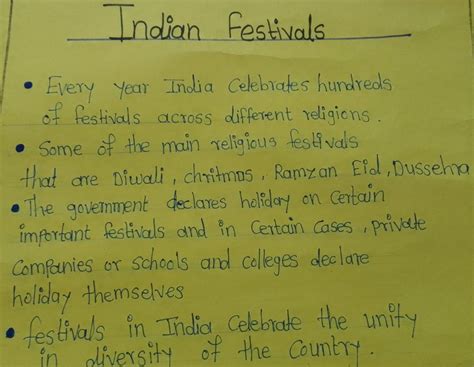 Indian Festivals
• Every year India celebrates hundreds
of festivals across different religions.
• Some of the main religious festivals
that are Diwali, chritmas, Ramzan Eid, Dussehra
• The government declares holiday on certain
important festivals and in certain cases, private
companies or schools and colleges declare
holiday themselves
• festivals in India celebrate the unity
in diversity of the country.